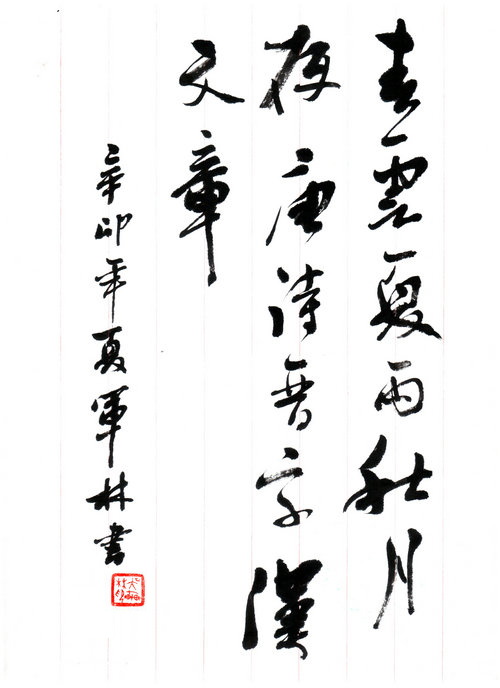 春雲夏雨秋月
夜唐诗晋字漢
文章
辛卯年夏軍林書